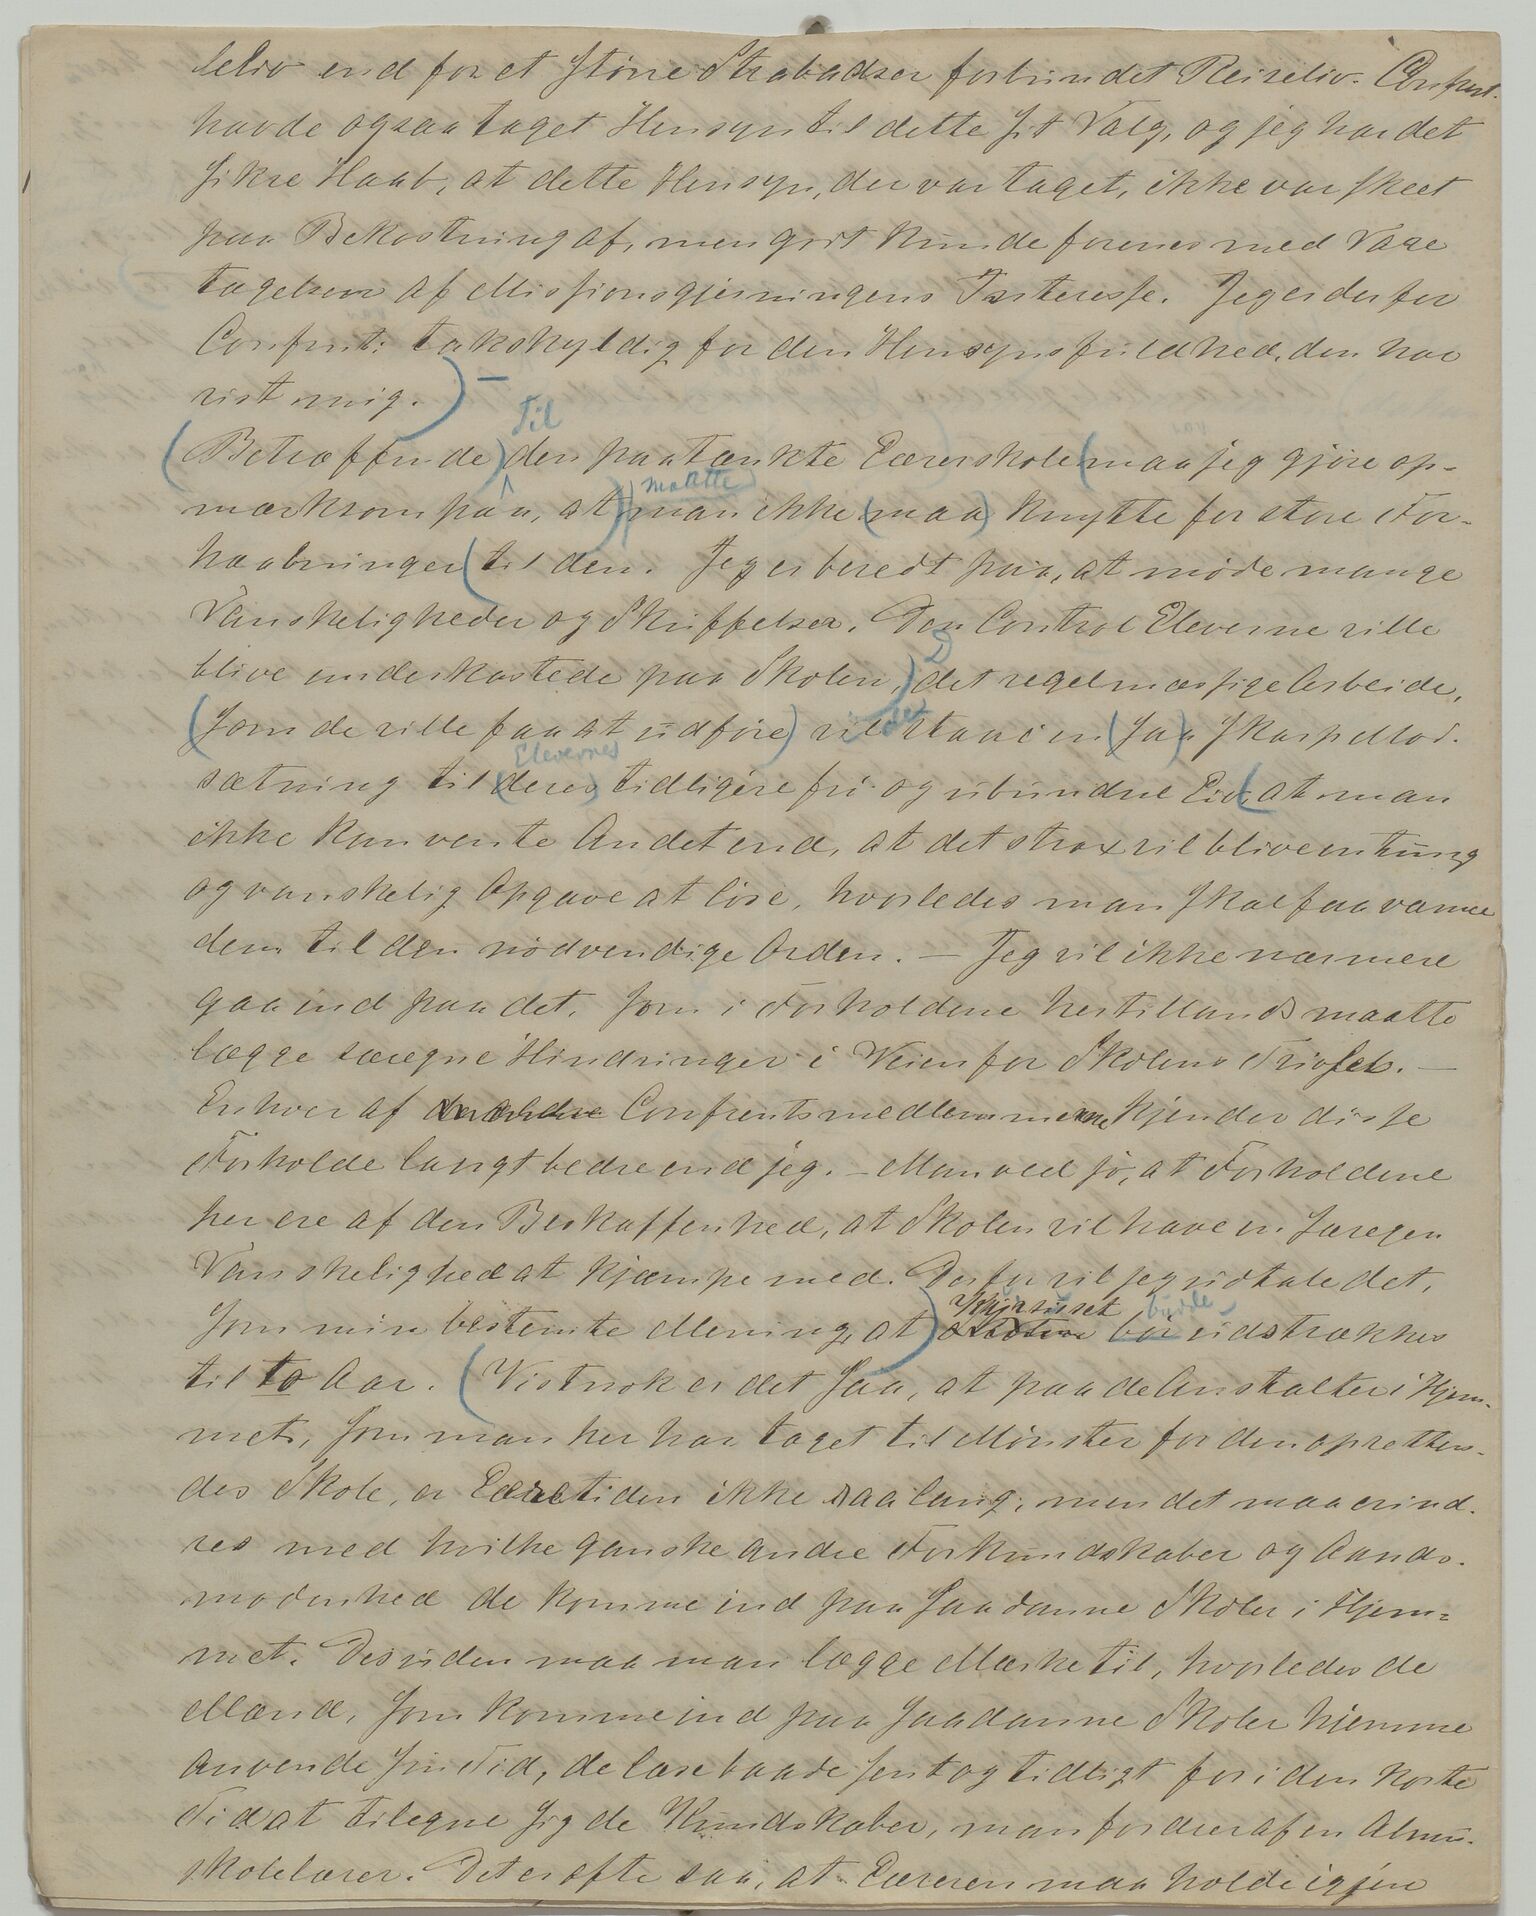 leliv end for et större Strabadser forbundet Reiseliv. Confrent.
havde ogsaa taget Hensyn til dette sit Valg, og jeg har det
sikre Haab, at dette Hensyn, der var taget, ikke var skeet
paa Bekostning af, men godt kunde forenes med Vare
tagelsen af Missionsgjerningens Interesse. Jeg er derfor
Confrent: takskyldig for den Hensynsfuldhed, den har
vist mig. ) –
Til
(Betræffende) den paatænkte Lærerskole (maa jeg gjöre op-
maatte
mærksom paa, at) man ikke (maa) knytte for store For-
haabninger (til den. Jeg er beredt paa, at möde mange
Vanskeligheder og Skuffelser. Den Control Eleverne ville
D
blive underkastede paa Skolen,) det regelmæssige Arbeide,
(som de ville faa at udföre) vil staa i en (saa) skarp Mod-
Elevernes
sætning til (deres) tidligere fri og ubundne Liv (at man
ikke kan vente Andet end, at det strax vil blive en tung
og vanskelig Opgave at löse, hvorledes man skal faa vænne
dem til den nödvendige Orden. – Jeg vil ikke nærmere
gaa ind paa det, som i Forholdene hertillands maatte
lægge særegne Hindringer i Veien for Skolens Trivsel. –
Enhver af Confrentsmedlemmerne kjender disse
Forholde langt bedre end jeg. – Man ved jo, at Forholdene
her ere af den Beskaffenhed, at Skolen vil have en særegen
Vanskelighed at kjæmpe med. Derfor vil jeg udtale det,
burde
som min bestemte Mening, at) bör udstrækkes
til to Aar. (Vistnok er det saa, at paa de Anstalter i Hjem-
met, som man her har taget til Mönster for den opretten-
des Skole, er Læretiden ikke saa lang; men det maa erind-
res med hvilke ganske andre Forkundskaber og Aands-
modenhed de komme ind paa saadanne Skoler i Hjem-
met. Desuden maa man lægge Mærke til, hvorledes de
Mænd, som komme ind paa saadanne Skoler hjemme
anvende sin Tid, de læse baade sent og tidligt for i den korte
Tid at tilegne sig de Kundskaber, man fordrer af en Almu-
skolelærer. Det er ofte saa, at Læreren maa holde igjen